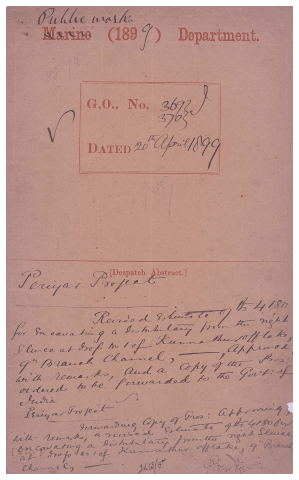 Public works
Marine (1899) Department.
G.O., No. 369 I
370
DATED 20th April 1899
[Despatch Abstract.]
Periyar Project
Revised Estimate of Rs 4180
for Excavating a Distributary from the right
Sluice at drop No 1 of
Branch Channel, Approved
with remarks, And a Copy of the Pro:
ordered to be forwarded to the Govt: of
India
Periyar Project
Forwarding Copy of Pros: Approving
with remarks, a revised Estimate of Rs 4180 for
Excavating a Distributary from the right Sluice
at drop No 1 of
Channel